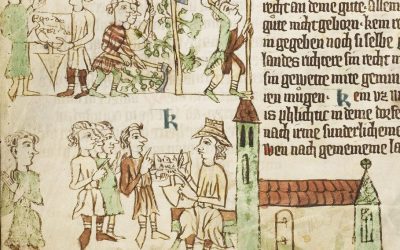 recht an deme gute. allem
gute nicht geborn. kein
in gegeben noch si selbe
landes richtere sin recht
sin gewette mite
mugen. k em uz w
is phlichte in deme
nach irme sunderlicheme
wen nach gemeneme la
k